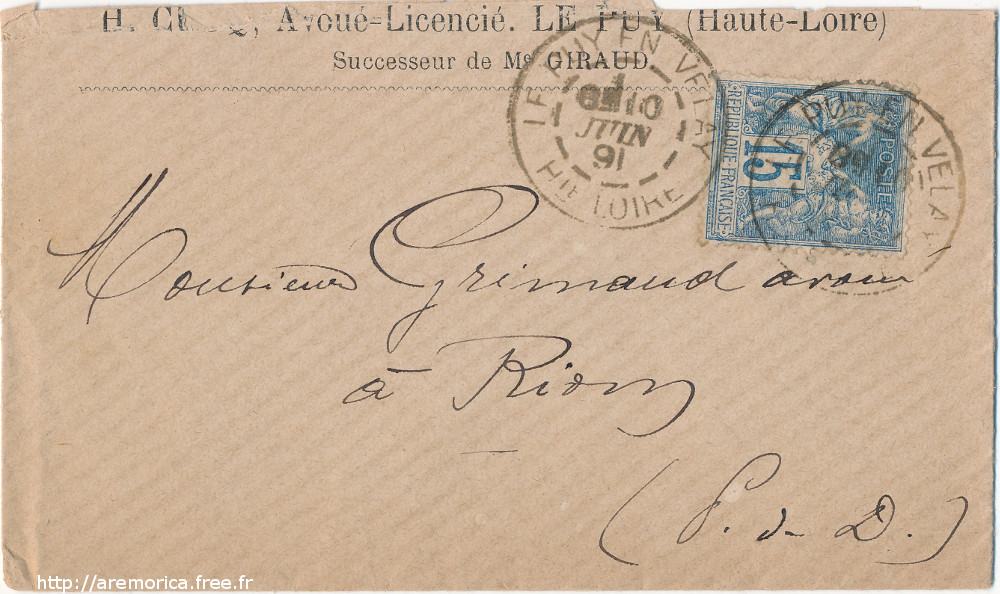 H. Avoué-Licencié. LE PUY (Haute-Loire)
Successeur de Me GIRAUD.
LE PUY EN VELAY
6E 10
JUIN
91
Hte LOIRE
PUY EN VELAY
POSTE
15
REPUBLIQUE FRANÇAISE
Monsieur Grimaud avoué
à Riom
(P. de D.)
http://aremorica.free.fr